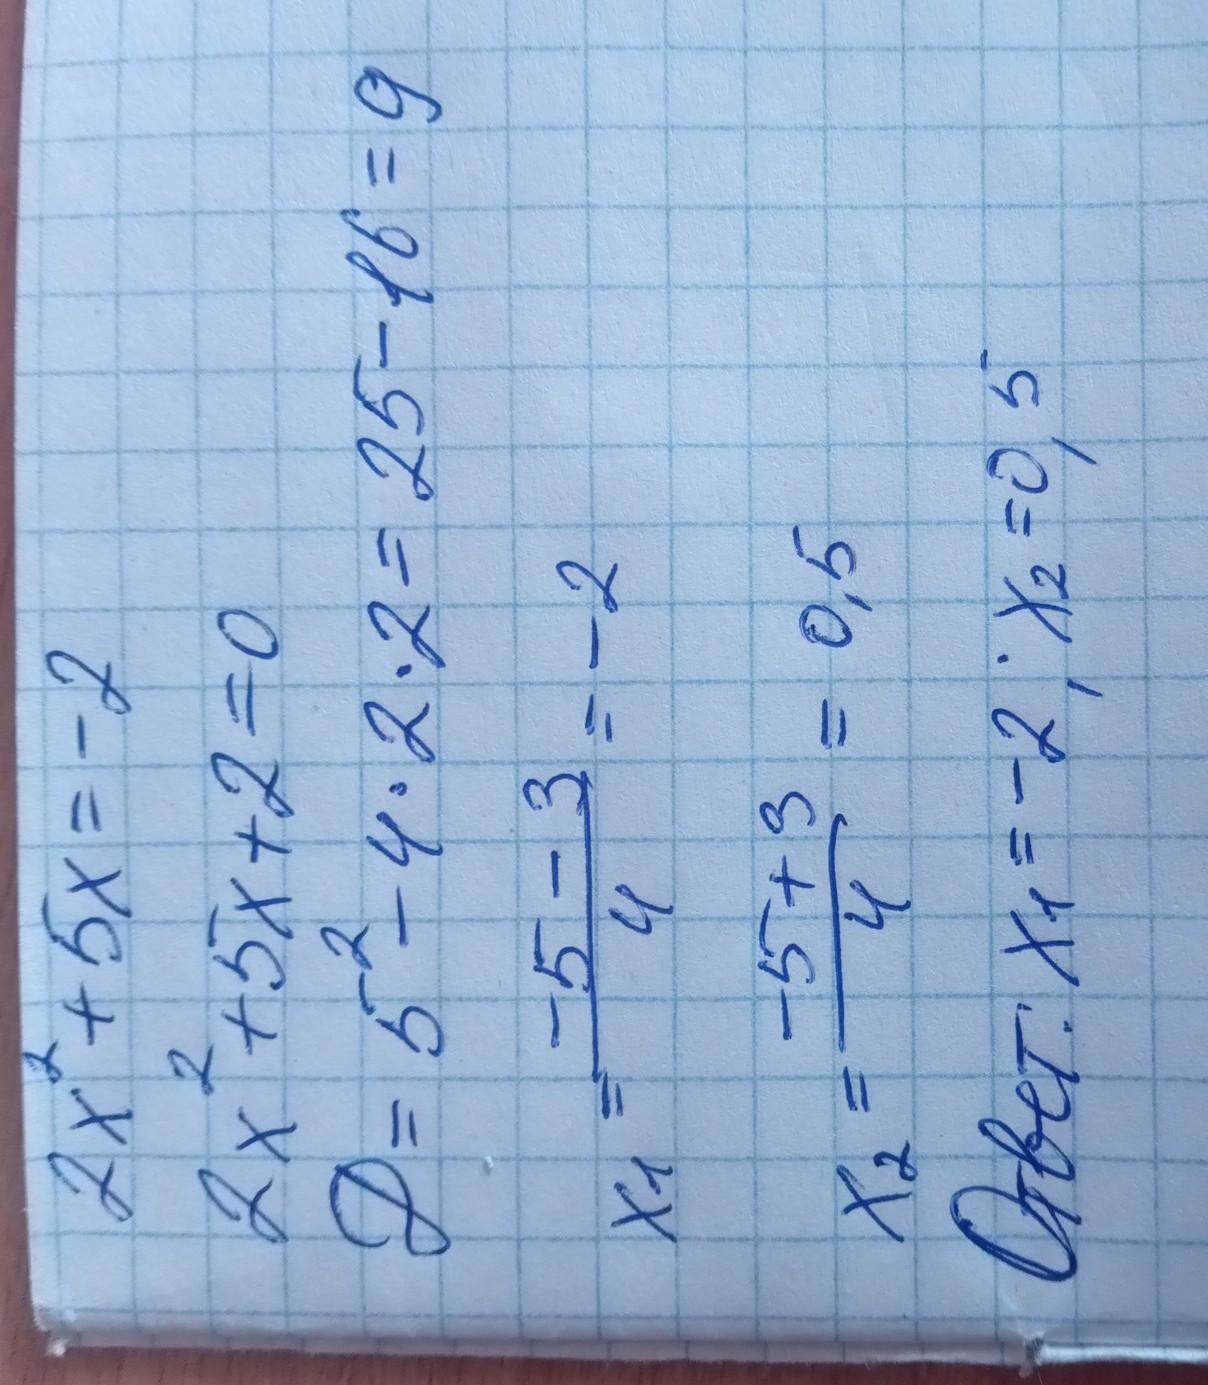 2x² + 5x = -2
2x² + 5x + 2 = 0
D = 5² - 4 · 2 · 2 = 25 - 16 = 9
x₁ = (-5 - 3)/4 = -2
x₂ = (-5 + 3)/4 = 0,5
Ответ: x₁ = -2; x₂ = 0,5